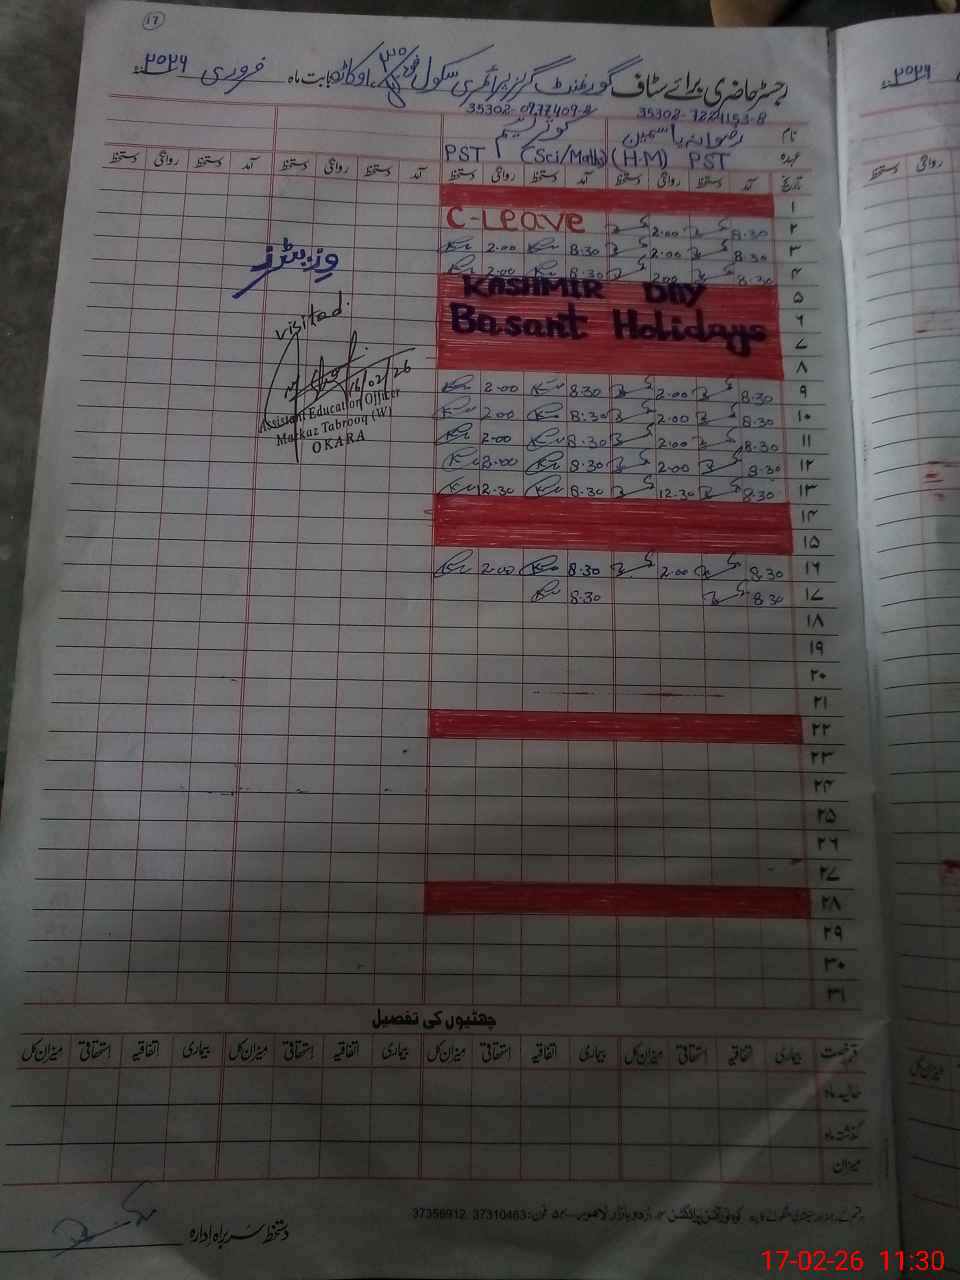 ۱۲
رجسٹر حاضری برائے سٹاف گورنمنٹ گرلز پرائمری سکول اوکاڑہ بابت ماہ فروری ۲۰۲۶
35302-7221153-8
نام رضوانہ یاسمین کوثر نسیم
عہدہ PST (H.M) PST (Sci/Math)
تاریخ آمد دستخط روانگی دستخط آمد دستخط روانگی دستخط آمد دستخط روانگی دستخط آمد دستخط روانگی دستخط
۱
۲ 8.30 2.00 C-Leave
۳ 8.30 2.00 8.30 2.00
۴ 8.30 2.00 8.30 2.00
۵ KASHMIR DAY
۶ Basant Holidays
۷
۸
۹ 8.30 2.00 8.30 2.00
۱۰ 8.30 2.00 8.30 2.00
۱۱ 8.30 2.00 8.30 2.00
۱۲ 8.30 2.00 8.30 2.00
۱۳ 8.30 12.30 8.30 12.30
۱۴
۱۵
۱۶ 8.30 2.00 8.30 2.00
۱۷ 8.30 8.30
۱۸
۱۹
۲۰
۲۱
۲۲
۲۳
۲۴
۲۵
۲۶
۲۷
۲۸
۲۹
۳۰
۳۱
وزیٹرز
visited.
16/02/26
Assistant Education Officer
Markaz Tabrooq (W)
OKARA
چھٹیوں کی تفصیل
قسم رخصت بیماری اتفاقیہ استحقاقی میزان کل بیماری اتفاقیہ استحقاقی میزان کل بیماری اتفاقیہ استحقاقی میزان کل بیماری اتفاقیہ استحقاقی میزان کل
حالیہ ماہ
گذشتہ ماہ
میزان
اردو بازار لاہور فون: 37310463 ,37356912
دستخط سربراہ ادارہ
۲۰۲۶
آمد دستخط روانگی دستخط
میزان کل
17-02-26 11:30